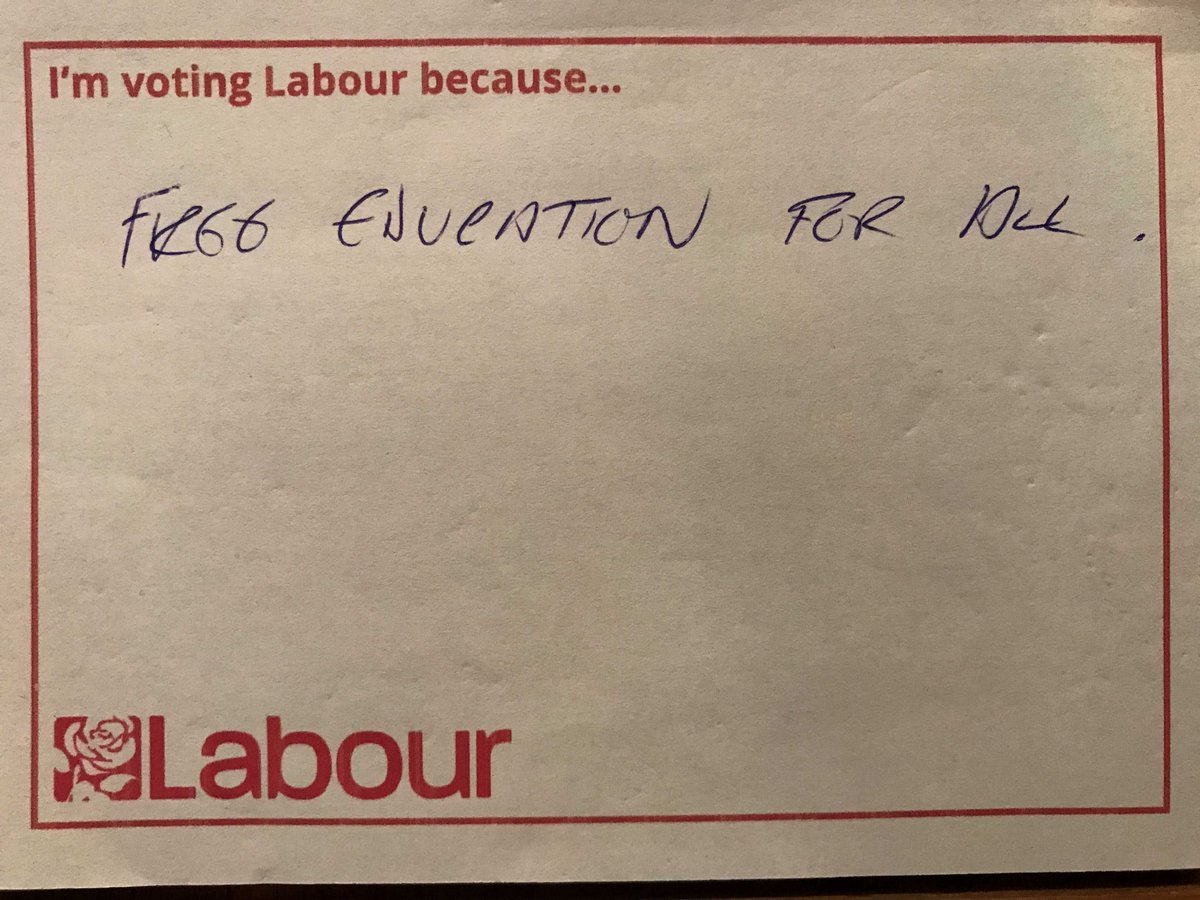 I'm voting Labour because...
FREE EDUCATION FOR ALL.
Labour